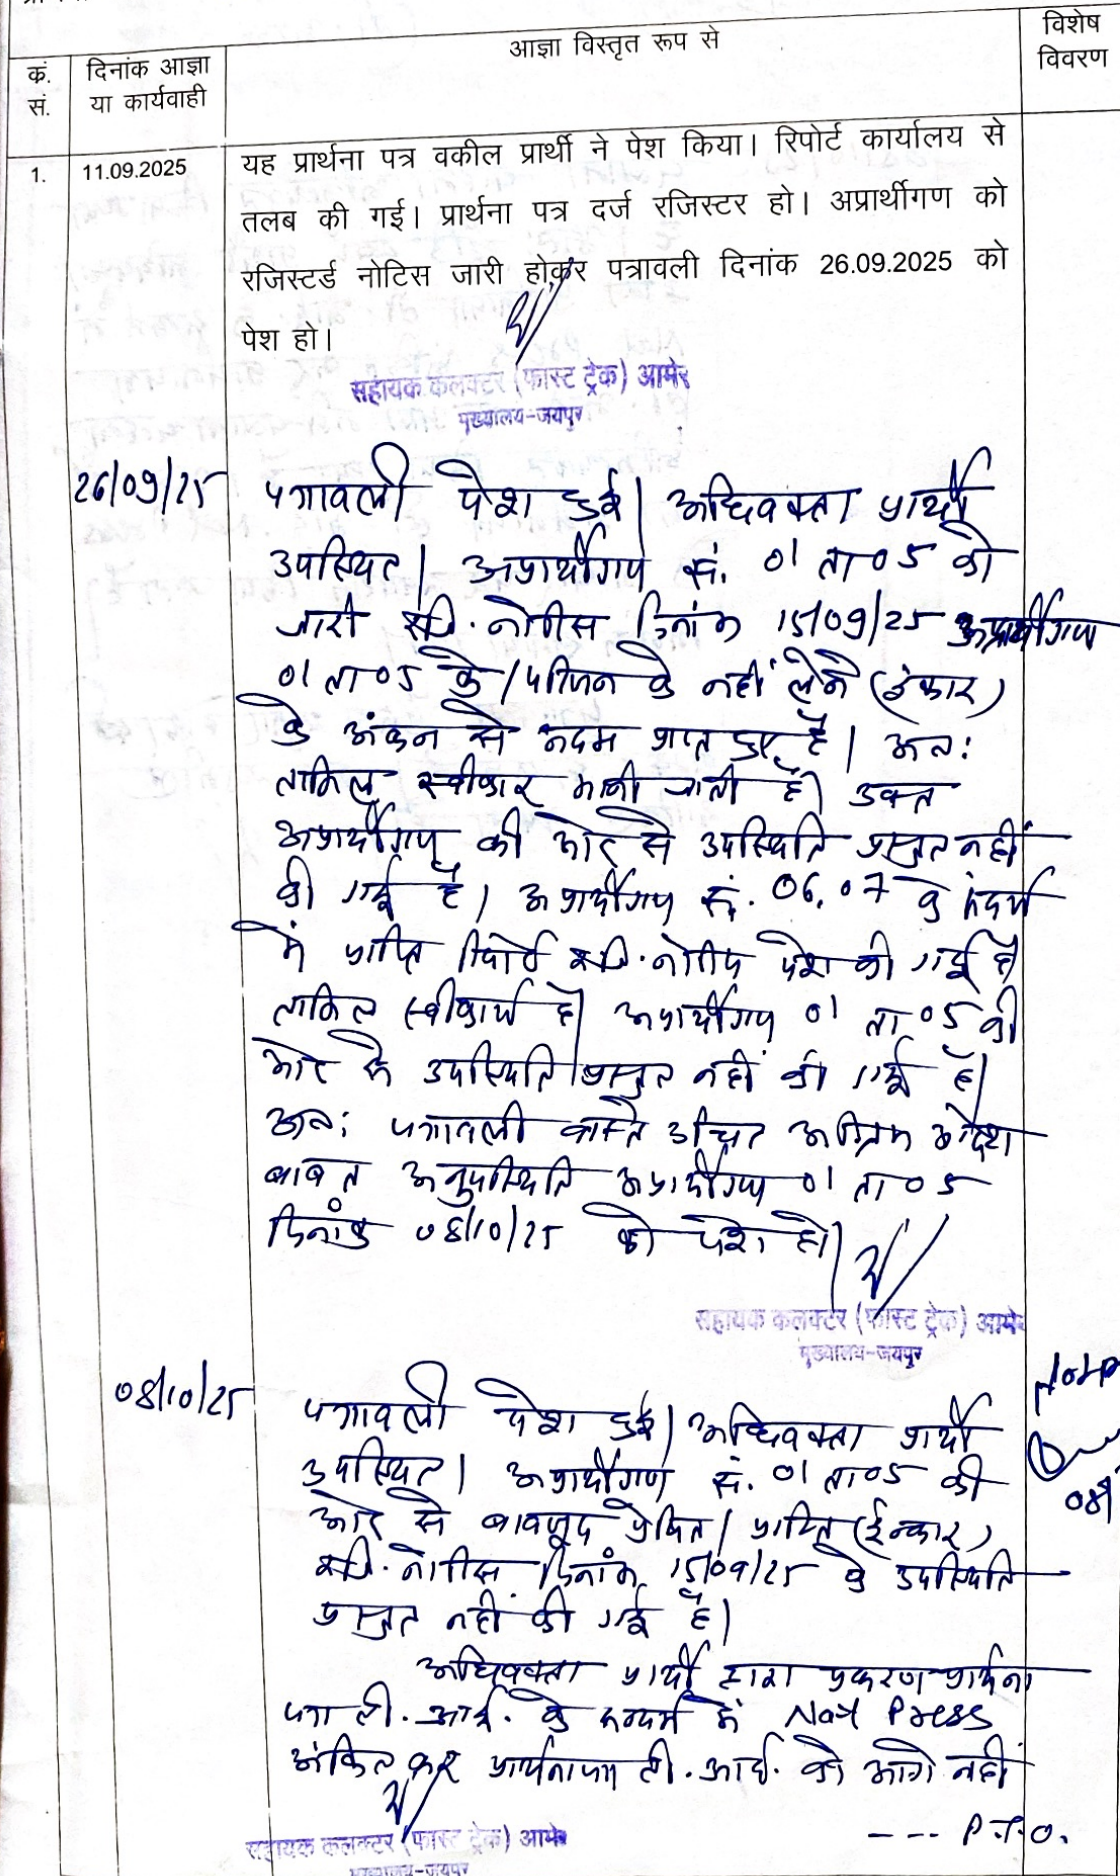 क्रं. सं.
दिनांक आज्ञा या कार्यवाही
आज्ञा विस्तृत रूप से
विशेष विवरण
1.
11.09.2025
यह प्रार्थना पत्र वकील प्रार्थी ने पेश किया। रिपोर्ट कार्यालय से
तलब की गई। प्रार्थना पत्र दर्ज रजिस्टर हो। अप्रार्थीगण को
रजिस्टर्ड नोटिस जारी होकर पत्रावली दिनांक 26.09.2025 को
पेश हो।
सहायक कलक्टर (फास्ट ट्रेक) आमेर
मुख्यालय-जयपुर
26/09/25
पत्रावली पेश हुई। अधिवक्ता प्रार्थी
उपस्थित। अप्रार्थीगण सं. 01 ता 05 को
जारी रजि. नोटिस दिनांक 15/09/25 अप्रार्थीगण
01 ता 05 के / परिजन के नहीं लेने (इंकार)
के अंकन से अदम प्राप्त हुए है। अतः
तामिल स्वीकार मानी जाती है। उक्त
अप्रार्थीगण की ओर से उपस्थिति प्रस्तुत नहीं
की गई है। अप्रार्थीगण सं. 06, 07 के संदर्भ
में प्राप्ति रिपोर्ट रजि. नोटिस पेश की गई है।
तामिल स्वीकार्य है। अप्रार्थीगण 01 ता 05 की
ओर से उपस्थिति प्रस्तुत नहीं की गई है।
अतः पत्रावली वास्ते उचित अग्रिम आदेश
बाबत अनुपस्थिति अप्रार्थीगण 01 ता 05
दिनांक 08/10/25 को पेश हो।
सहायक कलक्टर (फास्ट ट्रेक) आमेर
मुख्यालय-जयपुर
08/10/25
पत्रावली पेश हुई। अधिवक्ता प्रार्थी
उपस्थित। अप्रार्थीगण सं. 01 ता 05 की
ओर से बावजूद प्रेषित / प्राप्ति (ईन्कार)
रजि. नोटिस दिनांक 15/09/25 के उपस्थिति
प्रस्तुत नहीं की गई है।
अधिवक्ता प्रार्थी द्वारा प्रकरण प्रार्थना
पत्र टी. आई. के सन्दर्भ में Not Press
अंकित कर प्रार्थनापत्र टी. आई. को आगे नहीं
--- P.T.O.
सहायक कलक्टर (फास्ट ट्रेक) आमेर
मुख्यालय-जयपुर